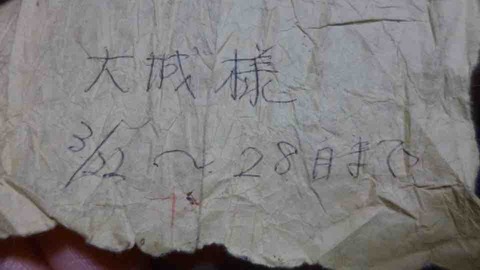 大城様
3/22〜28日まで